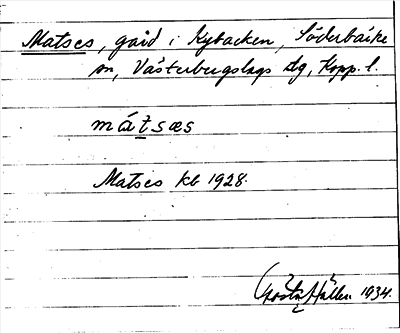 Matses, gård i Nybacken, Söderbärke
sn, Västerbergslags dg, Kopp. l.
mátsæs
Matses kb 1928.
Gösta Hallén 1934.